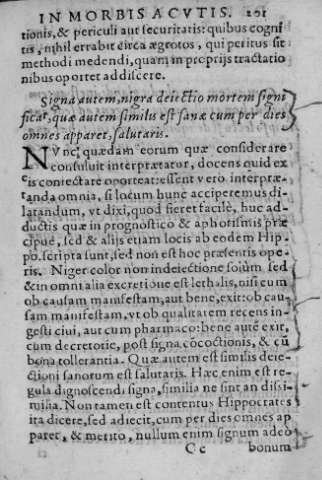 IN MORBIS ACVTIS. 201
tionis, & periculi aut securitatis: quibus cogni
tis, nihil errabit circa ægrotos, qui peritus sit
methodi medendi, quam in proprijs tractatio
nibus oportet addiscere.
Signa autem, nigra deiectio mortem signi
ficat, quæ autem similis est sanæ cum per dies
omnes apparet, salutaris.
NVnc quædam eorum quæ considerare
consuluit interpretatur, docens quid ex
eis coniectare oporteat: essent vero interpræ-
tanda omnia, si locum hunc acciperemus di-
latandum, vt dixi, quod fieret facilè, huc ad-
ductis quæ in prognostico & aphorismis præ
cipuè, sed & alijs etiam locis ab eodem Hip-
po. scripta sunt, sed non est hoc præsentis ope-
ris. Niger color non in deiectione solum sed
& in omni alia excretione est lethalis, nisi cum
ob causam manifestam, aut bene, exit: ob cau-
sam manifestam, vt ob qualitatem recens in-
gesti ciui, aut cum pharmaco: bene autē exit,
cum decretorie, post signa cōcoctionis, & cū
bona tollerantia. Quæ autem est similis deie-
ctioni sanorum est salutaris. Hæc enim est re-
gula dignoscendi signa, similia ne sint an dissi-
milia. Non tamen est contentus Hippocrates
ita dicere, sed adiecit, cum per dies omnes ap
paret, & merito, nullum enim signum adeo
Cc bonum